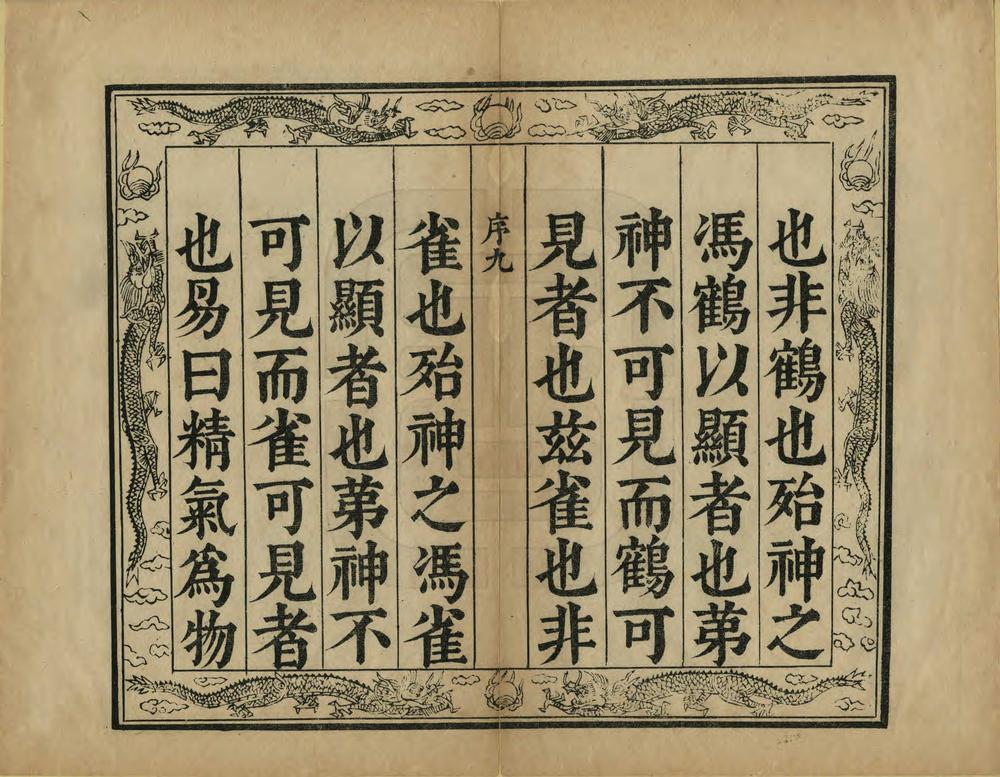 也非鶴也殆神之
馮鶴以顯者也苐
神不可見而鶴可
見者也茲雀也非
序九
雀也殆神之馮雀
以顯者也苐神不
可見而雀可見者
也易曰精氣爲物